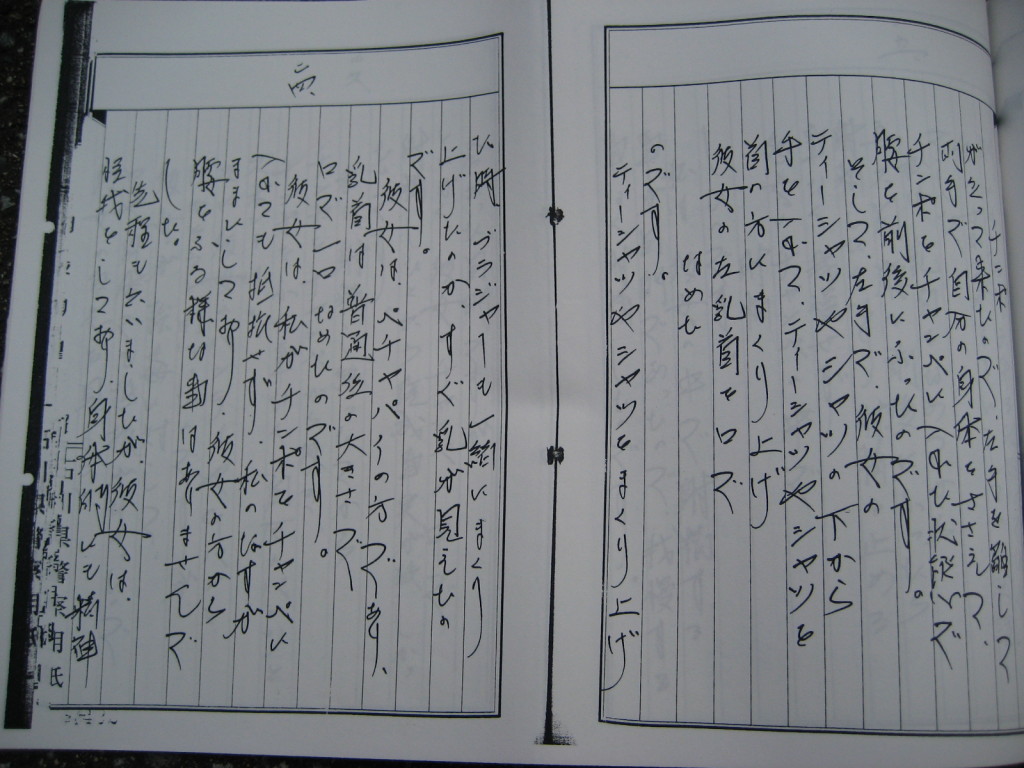 チンポ
がたって来たので、左手を離して
両手で自分の身体をささえて、
チンポをチャンペに入れた状態で
腰を前後にふったのです。
そして、左手で、彼女の
ティーシャツやシャツの下から
手を入れて、ティーシャツやシャツを
首の方にまくり上げ
彼女の左乳首を口で
なめた
のです。
ティーシャツやシャツをまくり上げ
た時、ブラジャーも一緒にまくり
上げたのか、すぐ乳が見えたの
です。
彼女は、ペチャパイの方であり、
乳首は普通位の大きさで
口で一口なめたのです。
彼女は、私がチンポをチャンペに
入れても抵抗せず、私のなすが
ままにしており、彼女の方から
腰をふる様な事はありませんで
した。
先程も云いましたが、彼女は、
をしており、身体的にも精神
石川県警察